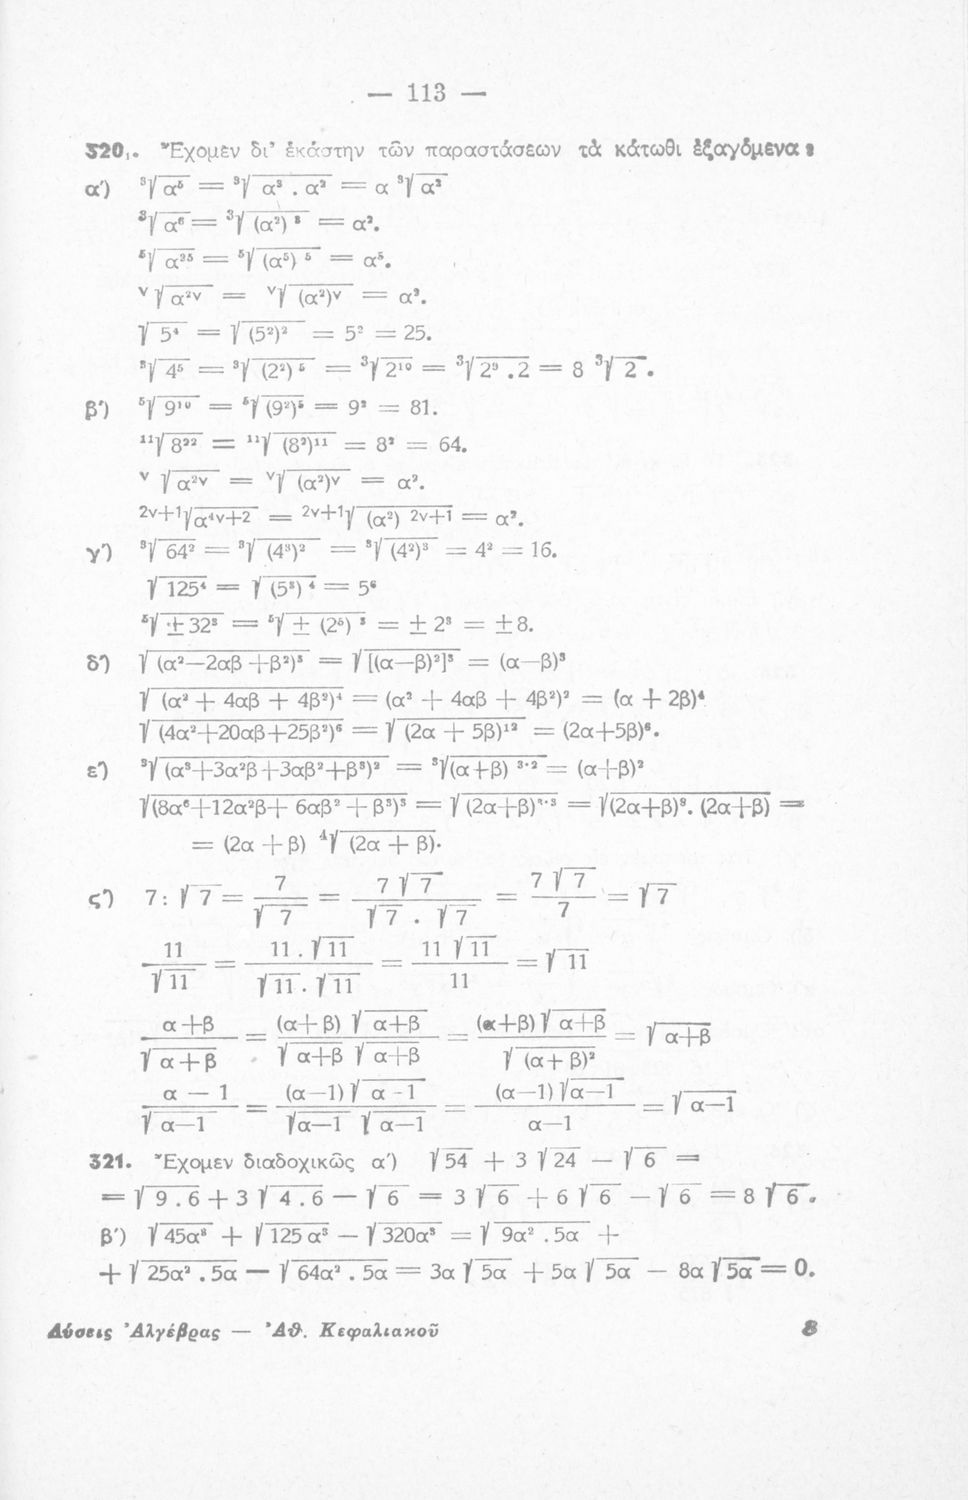 — 113 —
320,. Ἔχομεν δι’ ἑκάστην τῶν παραστάσεων τὰ κάτωθι ἐξαγόμενα :
α') ³√α⁵ = ³√α³ . α² = α ³√α²
³√α⁶ = ³√(α²)³ = α².
⁵√α²⁵ = ⁵√(α⁵)⁵ = α⁵.
ᵛ√α²ᵛ = ᵛ√(α²)ᵛ = α².
√5⁴ = √(5²)² = 5² = 25.
³√4⁵ = ³√(2²)⁵ = ³√2¹⁰ = ³√2⁹ .2 = 8 ³√2 .
β') ⁵√9¹⁰ = ⁵√(9²)⁵ = 9² = 81.
¹¹√8²² = ¹¹√(8²)¹¹ = 8² = 64.
ᵛ√α²ᵛ = ᵛ√(α²)ᵛ = α².
2ν+1√α⁴ᵛ⁺² = 2ν+1√(α²) 2ν+1 = α².
γ') ³√64² = ³√(4³)² = ³√(4²)³ = 4² = 16.
√125⁴ = √(5³)⁴ = 5⁶
⁵√±32³ = ⁵√± (2⁵)³ = ± 2³ = ±8.
δ') √(α²—2αβ +β²)³ = √[(α—β)²]³ = (α—β)³
√(α² + 4αβ + 4β²)⁴ = (α² + 4αβ + 4β²)² = (α + 2β)⁴
√(4α²+20αβ+25β²)⁶ = √(2α + 5β)¹² = (2α+5β)⁶.
ε') ³√(α³+3α²β+3αβ²+β³)² = ³√(α+β) ³·² = (α+β)²
√(8α⁶+12α²β+ 6αβ² + β³)³ = √(2α+β)³·³ = √(2α+β)⁸. (2α+β) =
= (2α + β) ⁴√(2α + β).
ς') 7 : √7 = 7/√7 = 7√7/√7 . √7 = 7√7/7 = √7
11/√11 = 11 . √11/√11 . √11 = 11 √11/11 = √11
α+β/√α+β = (α+β) √α+β/√α+β √α+β = (α+β) √α+β/√(α+β)² = √α+β
α — 1/√α—1 = (α—1) √α-1/√α—1 √α—1 = (α—1) √α—1/α—1 = √α—1
321. Ἔχομεν διαδοχικῶς α') √54 + 3 √24 — √6 =
= √9 . 6 + 3 √4 . 6 — √6 = 3 √6 + 6 √6 — √6 = 8 √6 .
β') √45α³ + √125 α³ — √320α³ = √9α² . 5α +
+ √25α² . 5α — √64α² . 5α = 3α √5α + 5α √5α — 8α √5α = 0.
Λύσεις Ἀλγέβρας — Ἀθ. Κεφαλιακοῦ 8